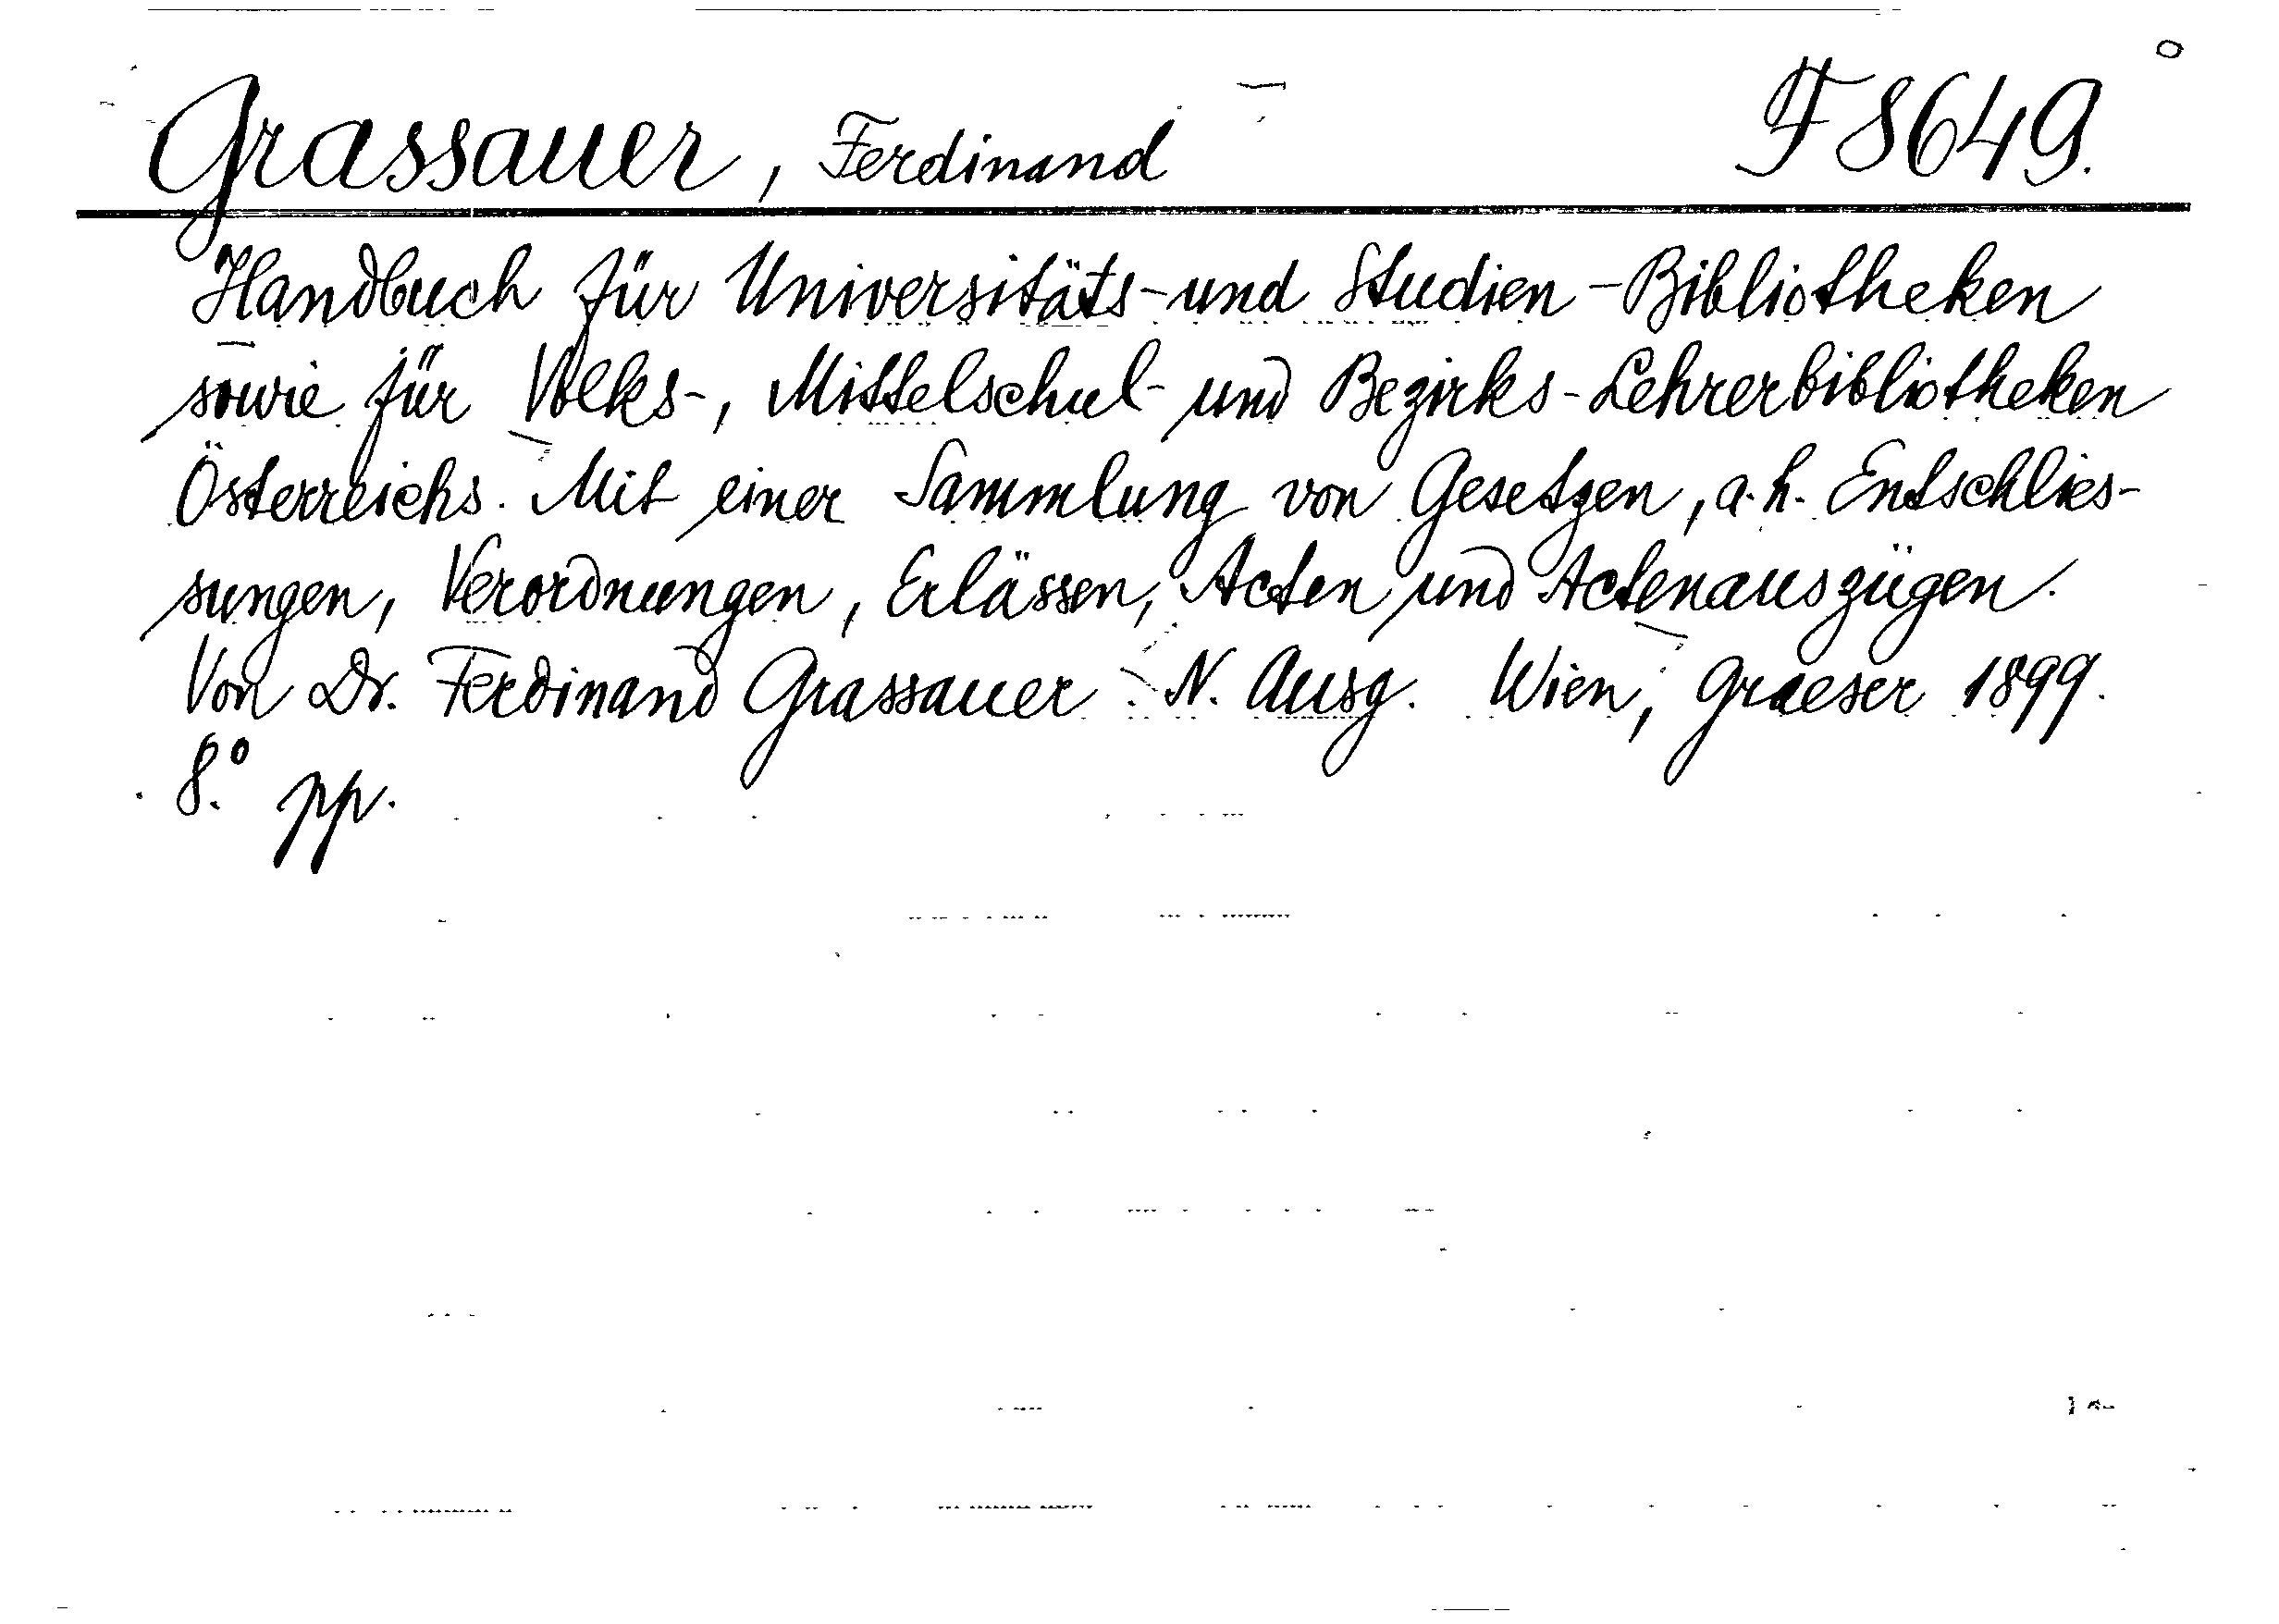 Grassauer, Ferdinand F 8649.
Handbuch für Universitäts- und Studien-Bibliotheken
sowie für Volks-, Mittelschul- und Bezirks-Lehrerbibliotheken
Österreichs. Mit einer Sammlung von Gesetzen, a. h. Entschlies-
sungen, Verordnungen, Erlässen, Acten und Actenauszügen.
Von Dr. Ferdinand Grassauer. N. Ausg. Wien, Graeser 1899.
8.° pp.